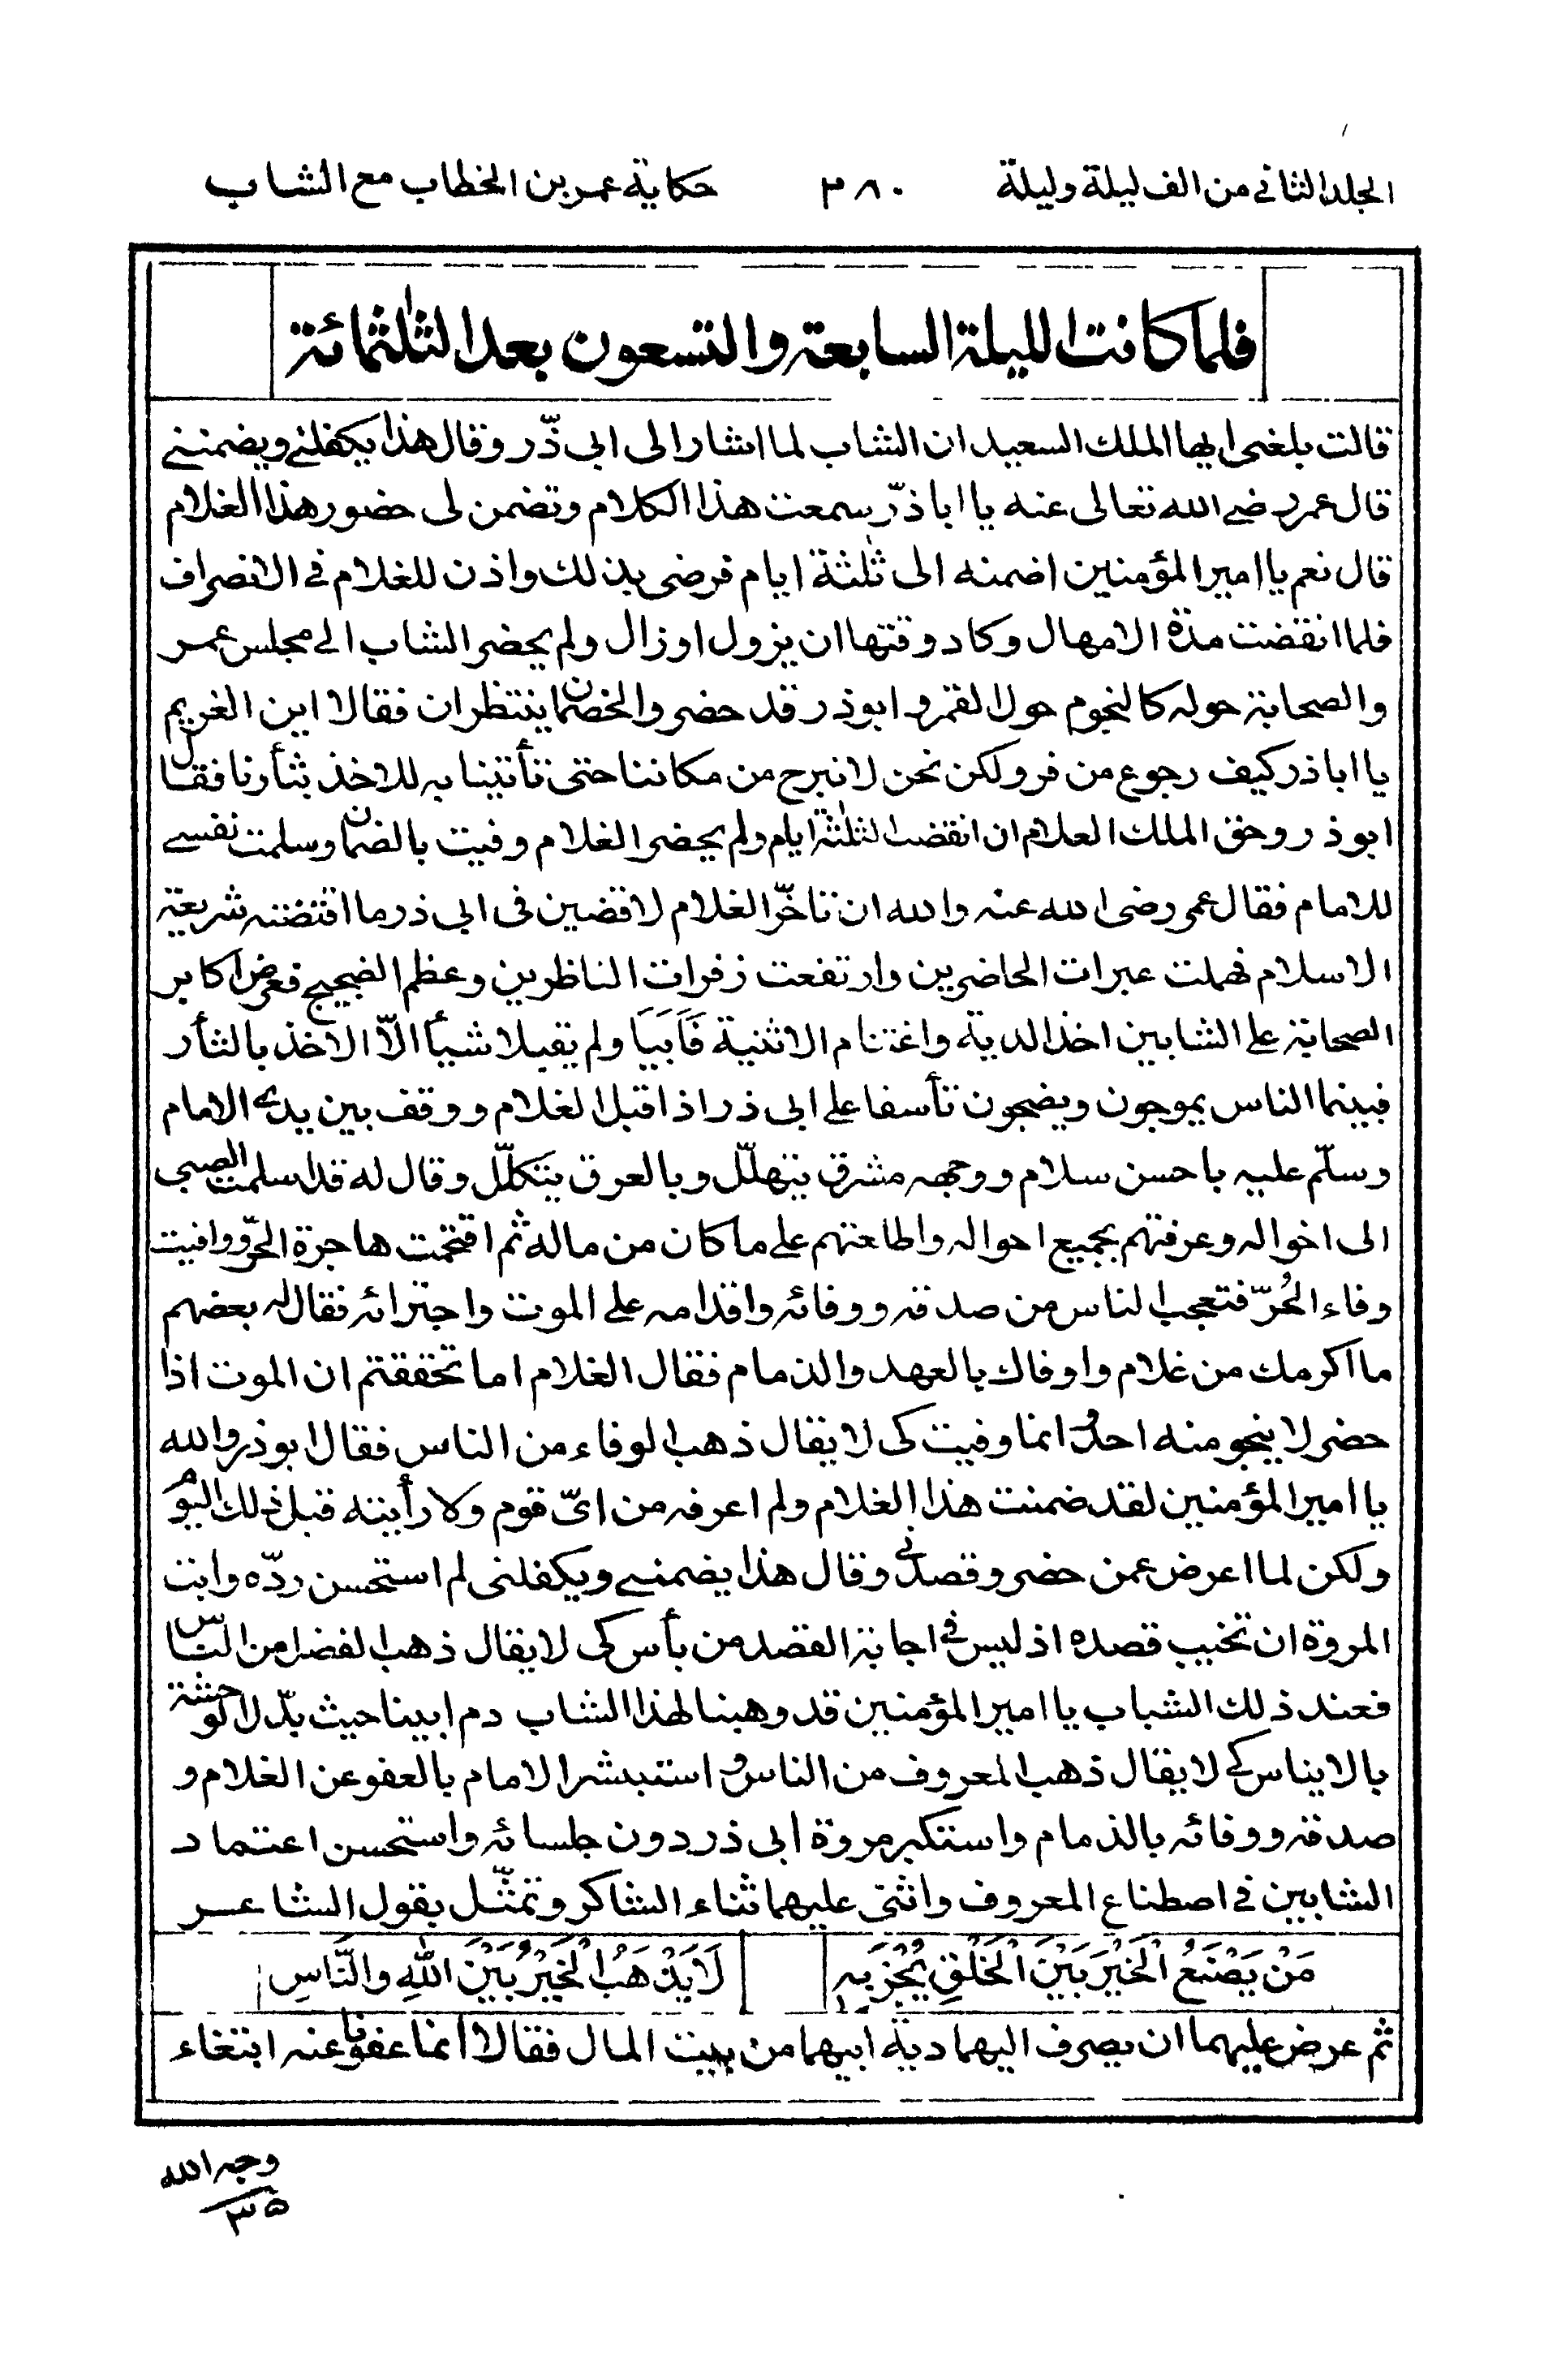 الجلد الثاني من الف ليلة وليلة ٣٨٠ حكاية عمر بن الخطاب مع الشاب
فلما كانت الليلة السابعة والتسعون بعد الثلٰثمائة
قالت بلغنى ايها الملك السعيد ان الشاب لما اشار الى ابى ذّر وقال هذا يكفلنى ويضمننى
قال عمر رضى الله تعالى عنه يا ابا ذرّ سمعت هذا الكلام وتضمن لى حضور هذا الغلام
قال نعم يا امير المؤمنين اضمنه الى ثلٰثة ايام فرضى بذلك واذن للغلام فى الانصراف
فلما انقضت مدّة الامهال وكاد وقتها ان يزول او زال ولم يحضر الشاب الى مجلس عمر
والصحابة حوله كالنجوم حول القمر و ابوذر قد حضر والخصمان ينتظران فقالا اين الغريم
يا ابا ذر كيف رجوع من فر ولكن نحن لا نبرح من مكاننا حتى تأتينا به للاخذ بثأرنا فقال
ابو ذر وحق الملك العلام ان انقضت الثلٰثة ايام ولم يحضر الغلام وفيت بالضمان وسلمت نفسى
للامام فقال عمر رضى الله عنه والله ان تاخّر الغلام لاقضين فى ابى ذر ما اقتضته شريعة
الاسلام فهملت عبرات الحاضرين وارتفعت زفرات الناظرين وعظم الضجيج فعرض اكابر
الصحابة على الشابين اخذ الدية واغتنام الاثنية فَاَبَيَا ولم يقبلا شيأ الّا الاخذ بالثأر
فبينما الناس يموجون ويضجون تأسفا على ابى ذر اذ اقبل الغلام ووقف بين يدى الامام
وسلّم عليه باحسن سلام ووجهه مشرق يتهلّل وبالعرق يتكلّل وقال له قد اسلمت الصبى
الى اخواله وعرفتهم بجميع احواله واطلعتهم على ما كان من ماله ثم اقتحمت هاجرة الحرّ ووافيت
وفاء الحُرّ فتعجب الناس من صدقه ووفائه واقدامه على الموت واجترائه فقال له بعضهم
ما اكرمك من غلام واوفاك بالعهد والذمام فقال الغلام اما تحققتم ان الموت اذا
حضر لا ينجو منه احد وانما وفيت كى لا يقال ذهب الوفاء من الناس فقال ابوذر والله
يا امير المؤمنين لقد ضمنت هذا الغلام ولم اعرفه من اىّ قوم ولا رأيته قبل ذلك اليوم
ولكن لما اعرض عمن حضر وقصدنى وقال هذا يضمنى ويكفلنى لم استحسن ردّه وابت
المروة ان تخيب قصده اذ ليس فى اجابة القصد من بأس كى لا يقال ذهب الفضل من الناس
فعند ذلك الشباب يا امير المؤمنين قد وهبنا لهذا الشاب دم ابينا حيث بدّل الوحشة
بالايناس كى لا يقال ذهب المعروف من الناس و استبشر الامام بالعفو عن الغلام و
صدقه ووفائه بالذمام واستكبر مروة ابى ذر دون جلسائه واستحسن اعتماد
الشابين فى اصطناع المعروف واثنى عليهما ثناء الشاكر وتمثّل بقول الشاعر
مَنْ يَصْنَعُ الْخَيْرَ بَيْنَ الْخَلْقِ يُجْزَ بِهِ لَا يَذْهَبُ الْخَيْرُ بَيْنَ اللّٰهِ والنَّاسِ
ثم عرض عليهما ان يصرف اليهما دية ابيهما من بيت المال فقالا انما عفونا عنه ابتغاء
وجه الله
٣٥